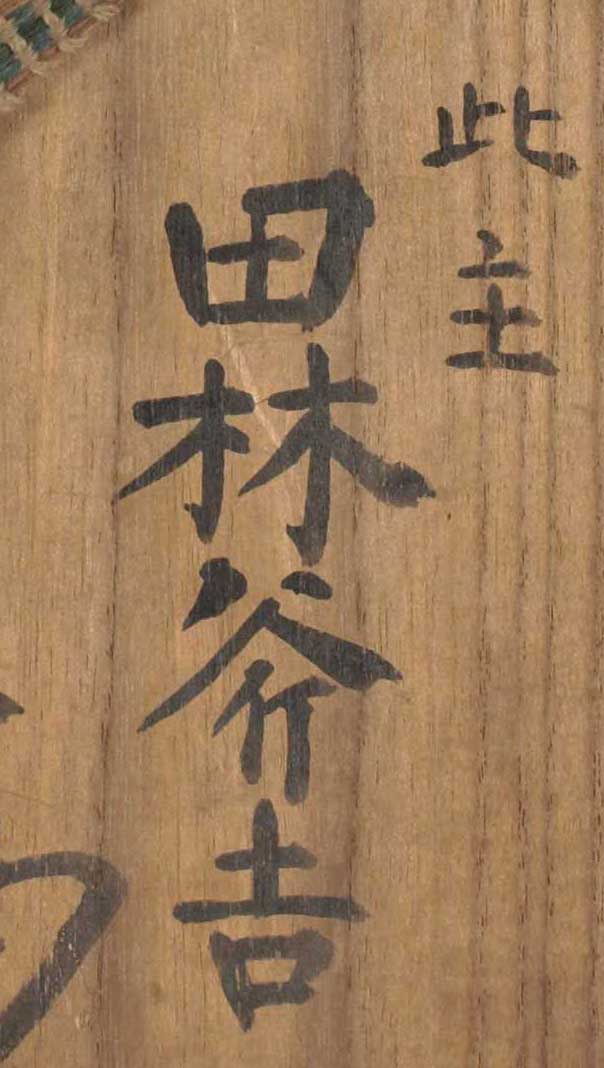 此主
田林斧吉